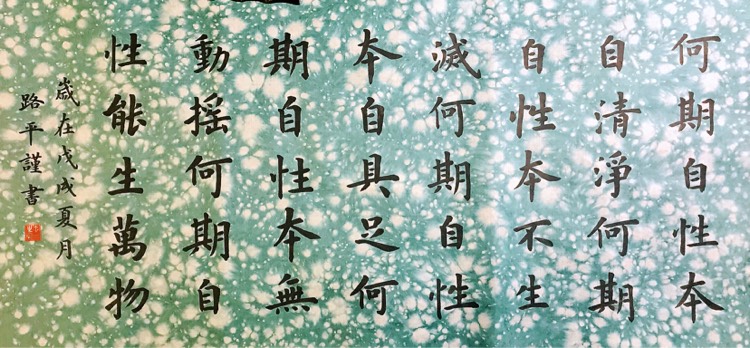 何期自性本
自清淨何期
自性本不生
滅何期自性
本自具足何
期自性本無
動搖何期自
性能生萬物
歲在戊戌夏月
路平謹書